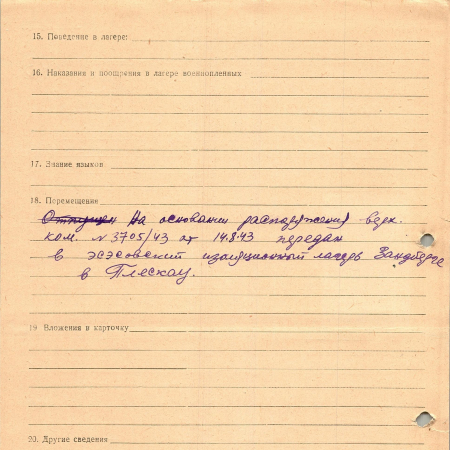 15. Поведение в лагере:
16. Наказания и поощрения в лагере военнопленных
17. Знание языков
18. Перемещение
Отпущен На основании распоряжения верх.
ком. №3705/43 от 14.8.43 передан
в эсэсовский изоляционный лагерь Зандберге
в Плескау.
19 Вложения в карточку
20. Другие сведения